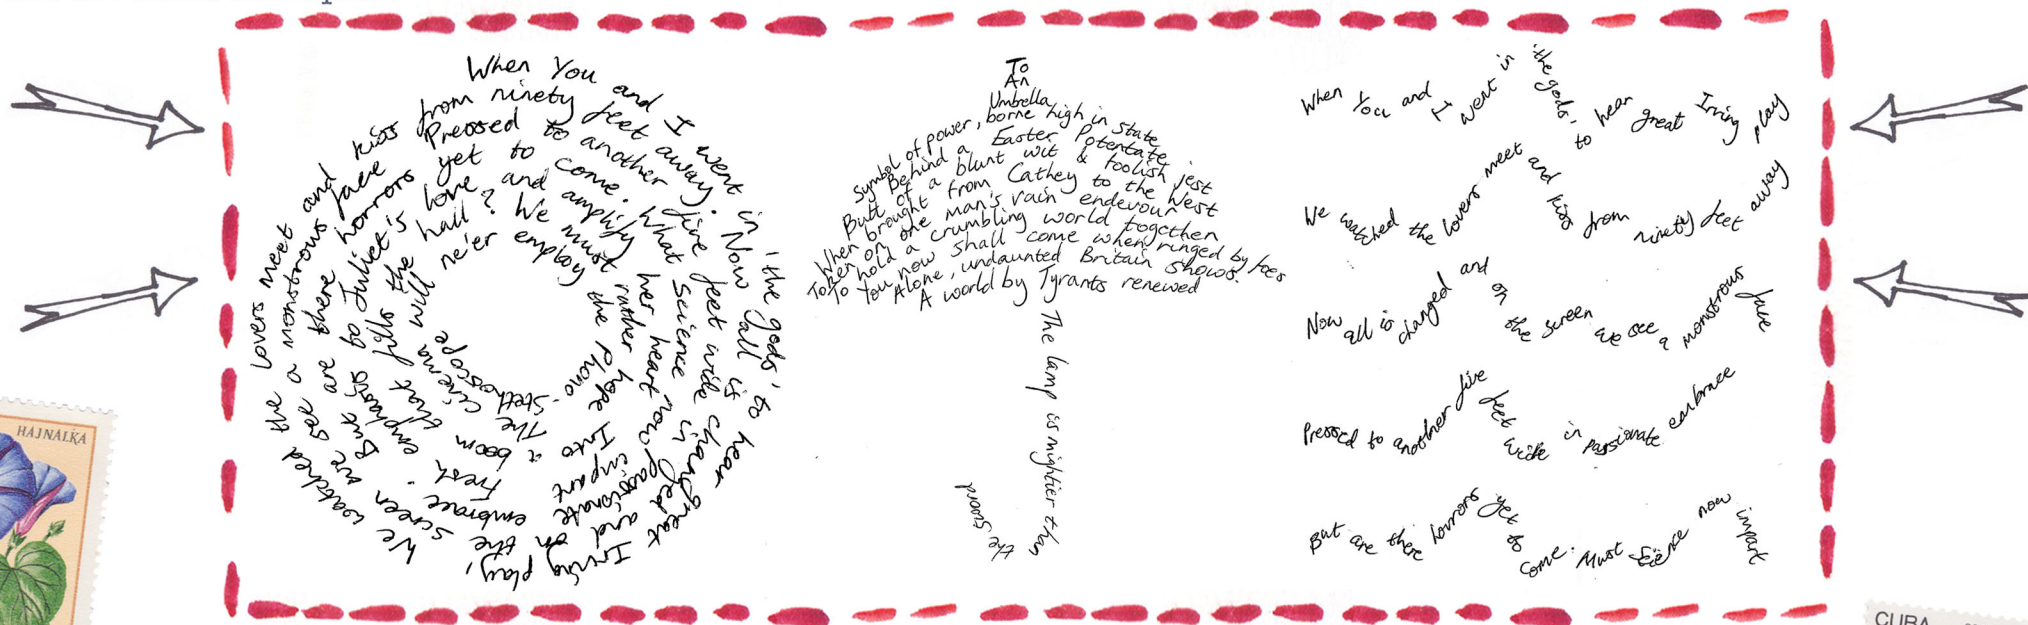 When You and I went in 'the gods', to hear great Irving play,
We watched the lovers meet and kiss from ninety feet away.
Now all is changed and on the screen we see a monstrous face
Pressed to another five feet wide in passionate embrace.
But are there horrors yet to come. What science now impart
Fresh emphasis to Juliet's love and amplify her heart
Into a boom that fills the hall? We must rather hope
The cinema will ne'er employ the Phono-Stethoscope
To
An
Umbrella
Symbol of power, borne high in state
Behind a Easter Potentate
Butt of a blunt wit & foolish jest
When brought from Cathey to the West
Then on one man's rain endevour
To hold a crumbling world together
To You now shall come when ringed by foes
Alone, undaunted Britain shows.
A world by Tyrants renewed
The lamp is mightier than
the Sword
When You and I went in 'the gods', to hear great Irving play
We watched the lovers meet and kiss from ninety feet away
Now all is changed and on the screen we see a monstrous face
Pressed to another five feet wide in passionate embrace
But are there horrors yet to come. Must Science now impart
HAJNALKA
CUBA